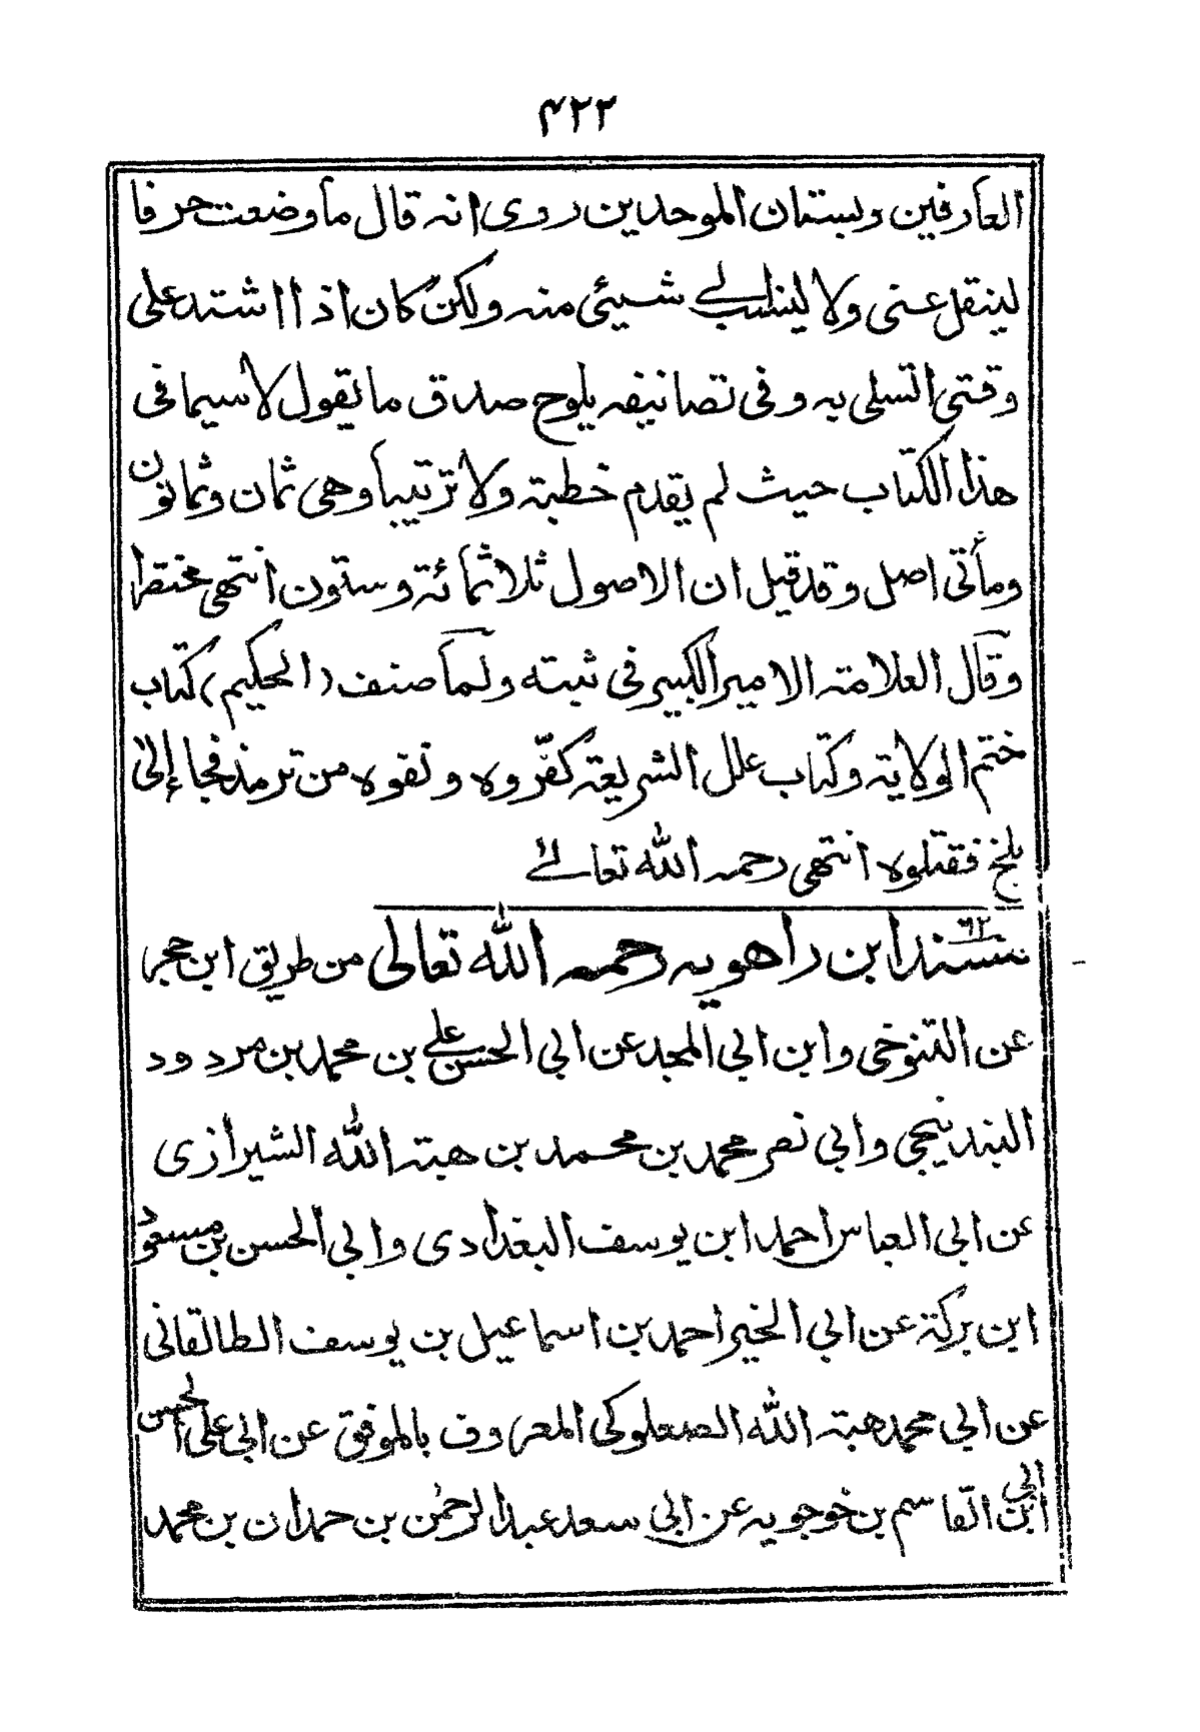 ۴۲۲
العارفين وبستان الموحدين روى انه قال ما وضعت حرفا
لينقل عنى ولا لينسب الي شيئى منه ولكن كان اذا اشتد على
وقتى اتسلى به وفى تصانيفه يلوح صدق ما يقول لاسيما فى
هذا الكتاب حيث لم يقدم خطبة ولا ترتيبا وهى ثمان وثمانون
ومأتى اصل وقد قيل ان الاصول ثلاثمائة وستون انتهى مختصرا
وقال العلامة الامير الكبير فى ثبته ولما صنف (الحكيم) كتاب
ختم الولاية وكتاب علل الشريعة كفّروه ونفوه من ترمذ فجاء إلى
بلخ فقتلوه انتهى رحمه الله تعالے
۶۲
مسند ابن راهويه رحمه الله تعالى من طريق ابن حجر
عن التنوخى وابن ابي المجد عن ابي الحسن علي بن محمد بن مردود
البندنيجى وابي نصر محمد بن محمد بن هبة الله الشيرازى
عن ابي العباس احمد ابن يوسف البغدادى وابي الحسن بن مسعود
ابن بركة عن ابي الخير احمد بن اسماعيل بن يوسف الطالقانى
عن ابي محمد هبة الله الصعلوكى المعروف بالموفق عن ابي على الحسن
ابن ابي القاسم بن خوجويه عن ابي سعد عبد الرحمٰن بن حمدان بن محمد